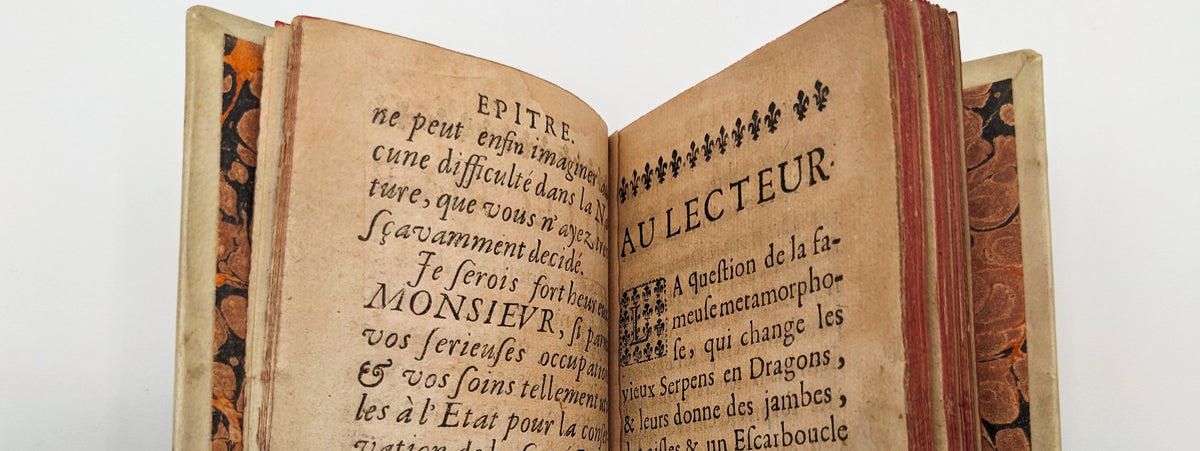 EPITRE.
ne peut enfin imaginer
cune difficulté dans la
ture, que vous n'ayez
ſçavamment decidé.
Je ſerois fort
MONSIEVR, ſi
vos ſerieuſes
& vos ſoins tellement
les à l'Etat pour la
AU LECTEUR.
LA queſtion de la fa-
meuſe metamorpho-
ſe, qui change les
vieux Serpens en Dragons,
& leurs donne des jambes,
& un Eſcarboucle